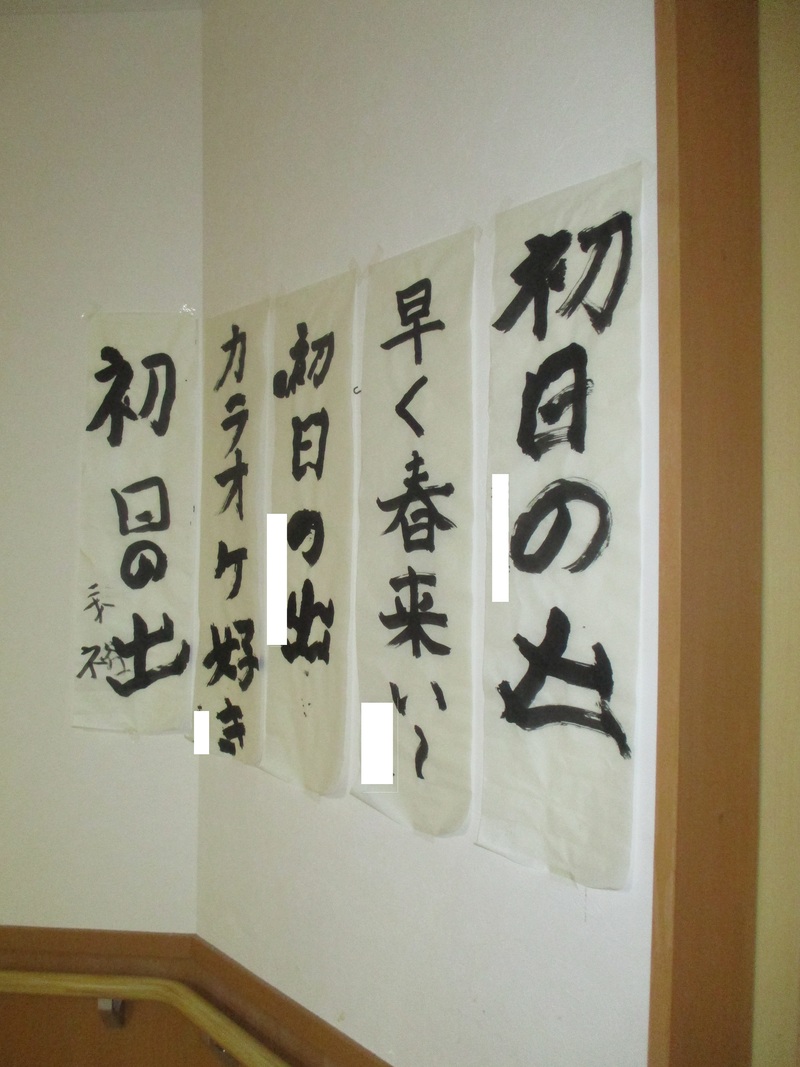 初日の出
早く春来い〜
初日の出
カラオケ好き
初日の出